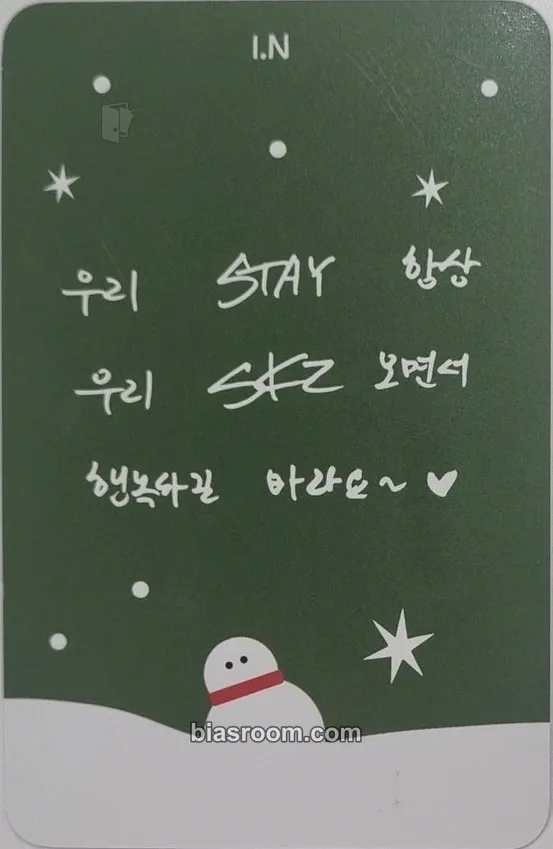 I.N
우리 STAY 항상
우리 SKZ 보면서
행복하길 바라요~ ♥
biasroom.com